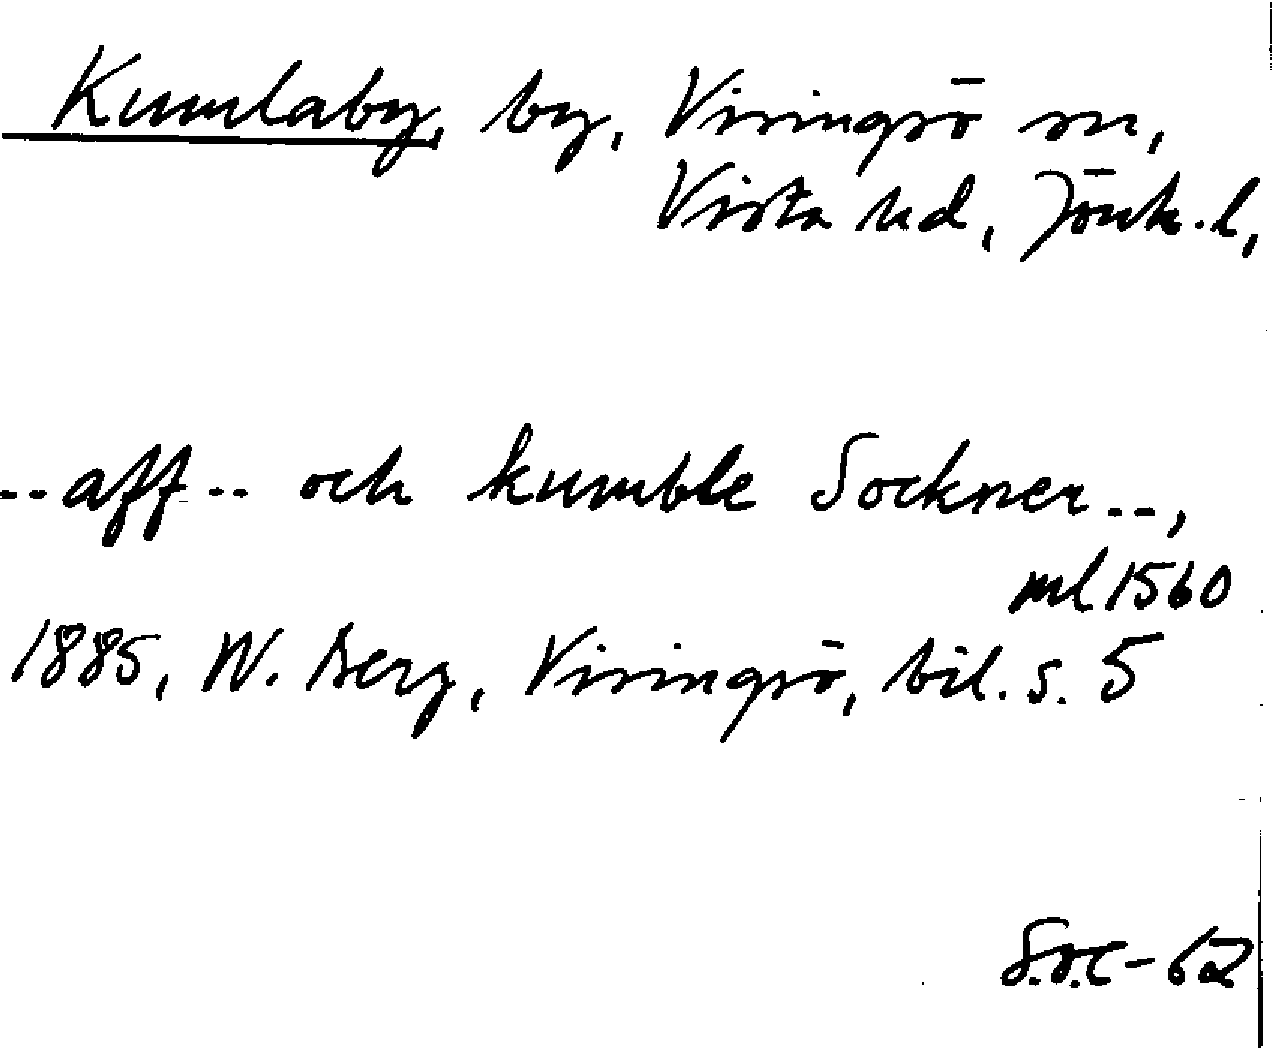 Kumlaby, by, Visingsö sn,
Vista hd, Jönk. l,
-- aff -- och kumble Sockner --,
ml 1560
1885, W. Berg, Visingsö, bil. s. 5
-62